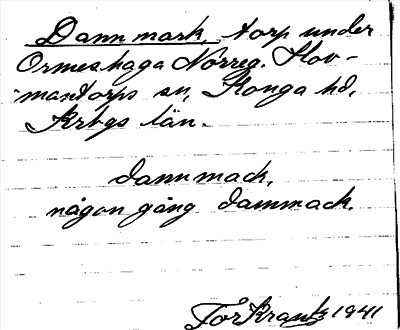 Dannmark, torp under
Ormeshaga Norreg. Hov-
mantorps sn, Konga hd,
Krbgs län.
dannmack,
någon gång dammack.
Tor Krantz 1941